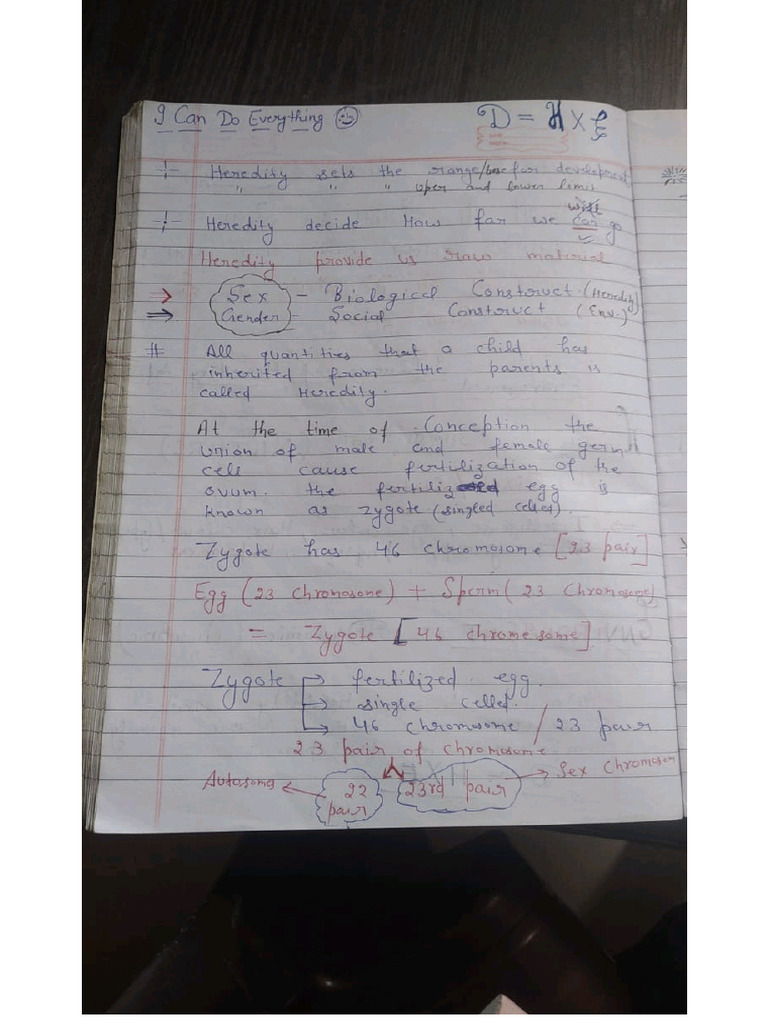 I Can Do Everything
D = H X E
Heredity sets the range/base for development
" " " uper and lower limit
Heredity decide How far we can go
will
Heredity provide us raw material
⇒ Sex - Biological Construct. (Heredity)
⇒ Gender - Social Construct (Env.)
# All quantities that a child has
inherited from the parents is
called Heredity.
At the time of Conception the
union of male and female germ
cells cause fertilization of the
ovum. the fertilized egg is
known as zygote (singled celled).
Zygote has 46 chromosome [23 pair]
Egg (23 chromosone) + Sperm (23 Chromosome)
= Zygote [46 chromesome]
Zygote → fertilized egg.
→ single celled.
→ 46 chromosome / 23 pair
23 pair of chromosome
Autosomes ← 22 pair 23rd pair → Sex Chromosom